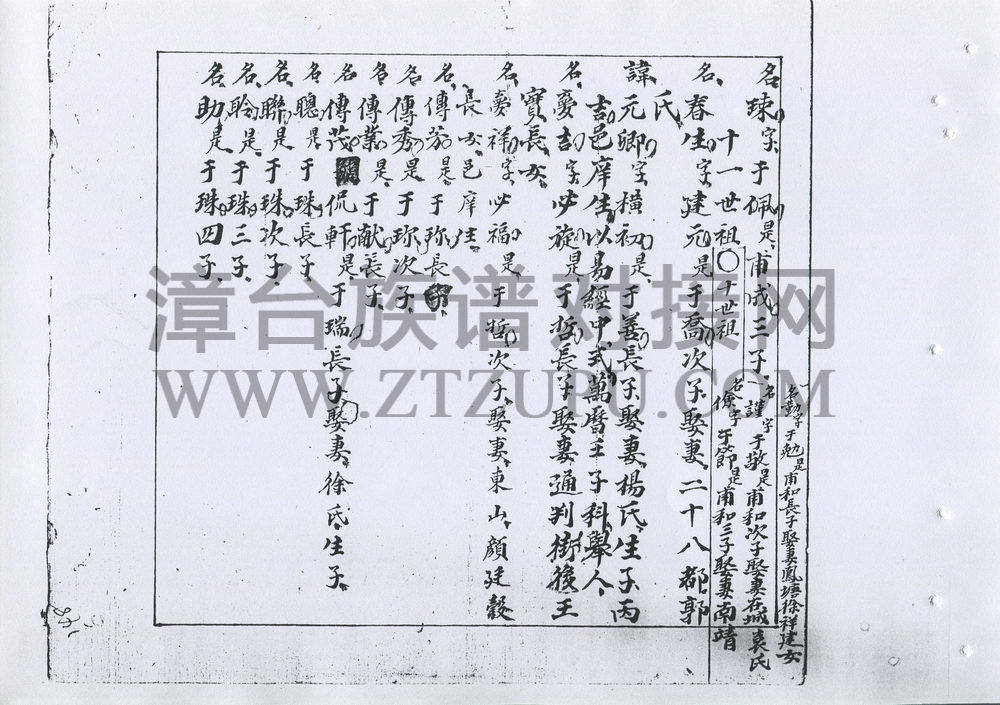 名勤字于勉是甫和長子娶妻鳳塘徐祥建女
名謹字于敬是甫和次子娶妻在城袁氏
名儉字于節是甫和三子娶妻南靖
名珠字于佩是甫成三子
十一世祖〇十世祖
名春生字建元是于喬次子娶妻二十八都郭
氏
諱元卿字橫初是于善長子娶妻楊氏生子丙
吉邑庠生以易經中式萬曆壬子科舉人
名夢吉字必旋是于哲長子娶妻通判街後王
寶長女
名夢祥字必福是于哲次子娶妻東山顏廷毅
長女邑庠生
名傳芬是于珎長
名傳秀是于珎次子
名傳業是于献長子
名傳茂侃軒是于瑞長子娶妻徐氏生子
名聰是于珠長子
名聯是于珠次子
名聆是于珠三子
名助是于珠四子
漳台族谱对接网
WWW.ZTZUPU.COM